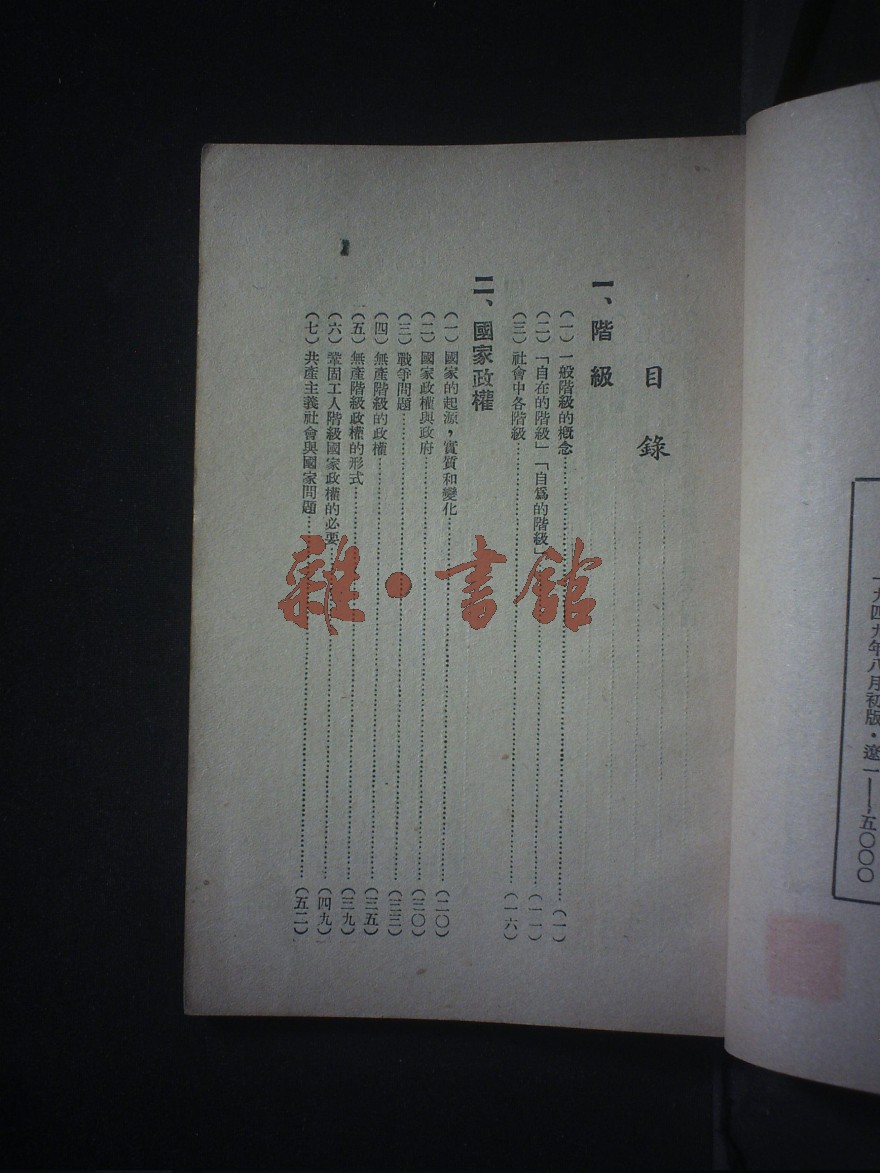 一九四九年八月初版·遼一——五〇〇〇
目錄
一、階級
（一）一般階級的概念……（一）
（二）「自在的階級」「自爲的階級」……（一一）
（三）社會中各階級……（一六）
二、國家政權
（一）國家的起源，實質和變化……（二〇）
（二）國家政權與政府……（三〇）
（三）戰爭問題……（三三）
（四）無產階級的政權……（三五）
（五）無產階級政權的形式……（三九）
（六）鞏固工人階級國家政權的必要……（四九）
（七）共產主義社會與國家問題……（五二）
雜·書館